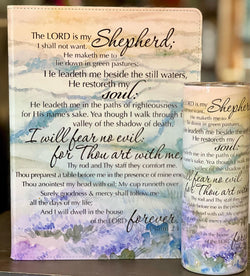 The LORD is my Shepherd;
I shall not want.
He maketh me to
lie down in green pastures;
He leadeth me beside the still waters,
He restoreth my
soul;
He leadeth me in the paths of righteousness
for His name's sake. Yea though I walk through
valley of the shadow of death,
I will fear no evil:
for Thou art with me,
Thy rod and Thy staff they comfort me.
Thou preparest a table before me in the presence of mine
Thou anointest my head with oil; My cup runneth over.
Surely goodness & mercy shall follow me
all the days of my life;
And I will dwell in the house
of the LORD forever.
The LORD is my
Shepherd
soul;
I will fear no
for Thou art
forever